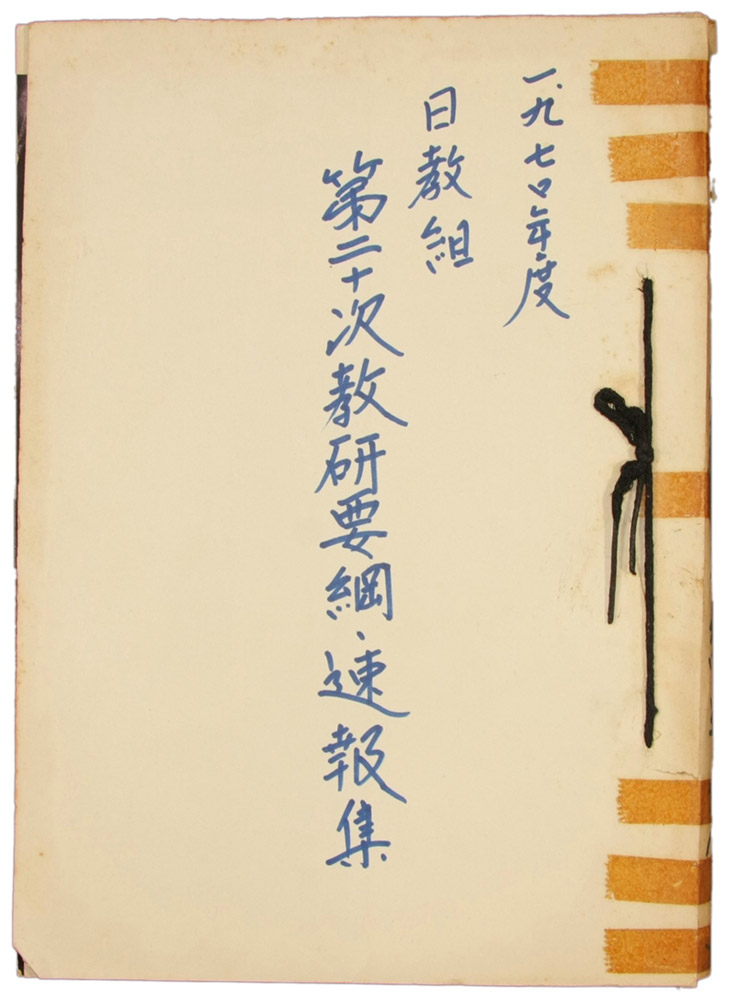 一九七〇年度
日教組
第二十次教研要綱、速報集